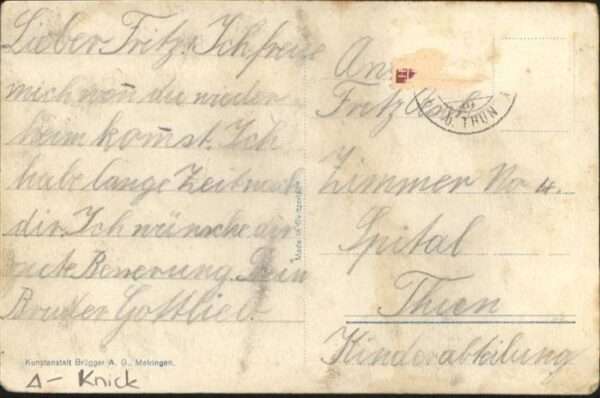 Lieber Fritz! Ich freue
mich wan̄ du wieder
heim kom̄st. Ich
habe lange Zeit nach
dir. Ich wünsche dir
gute Besserung. Dein
Bruder Gottlieb.
An
Fritz
Zimmer No 4.
Spital
Thun
Kinderabteilung
THUN
Made in Switzerland
Kunstanstalt Brügger A. G., Meiringen.
Δ- Knick